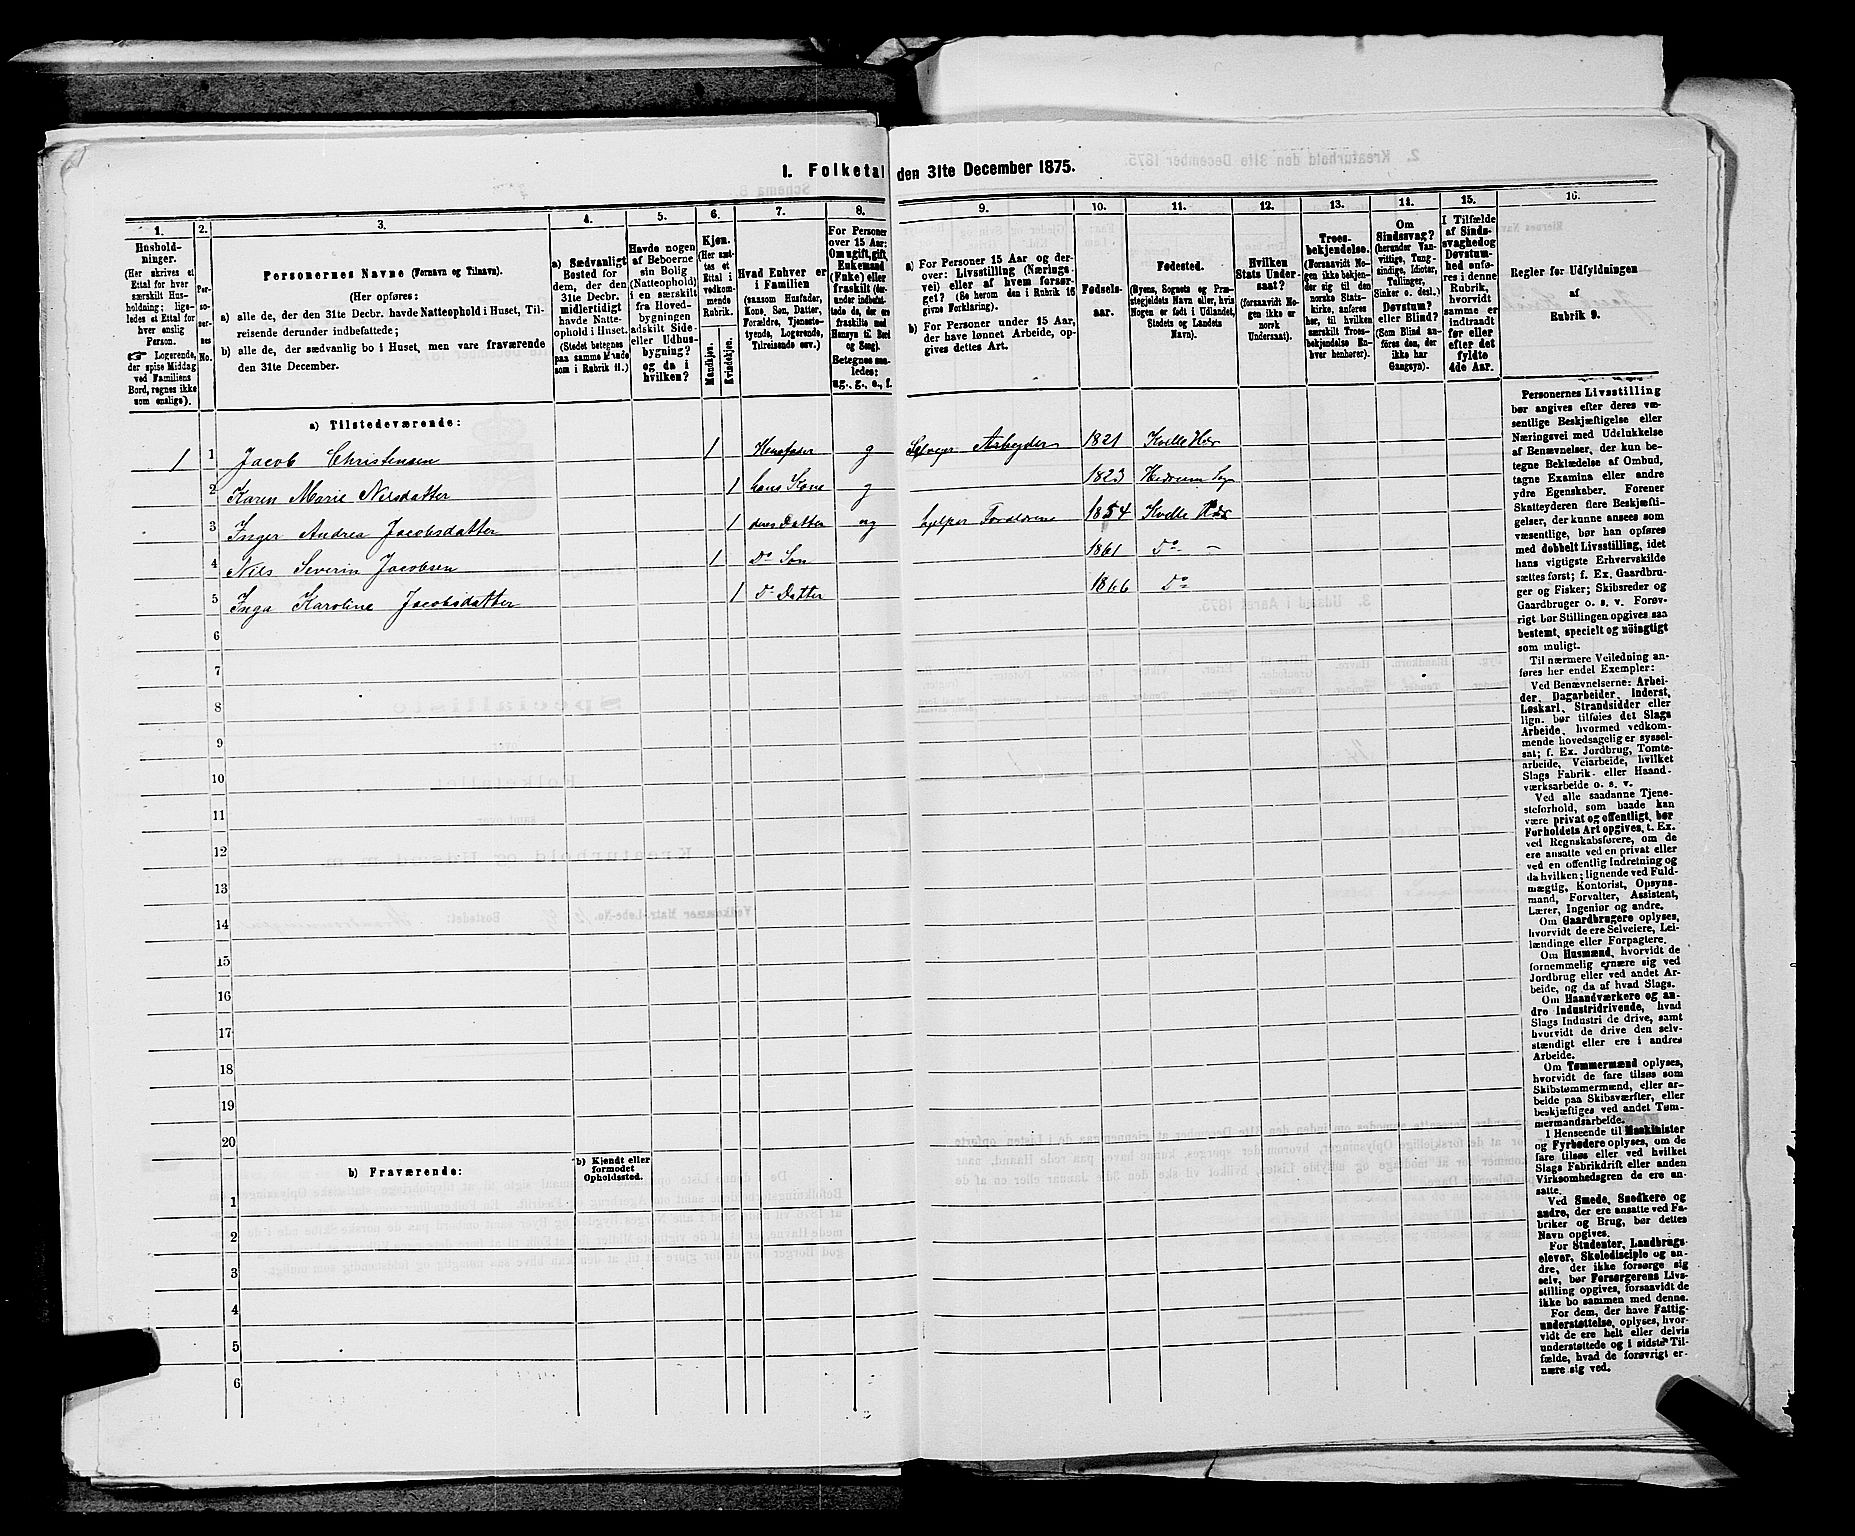 I. Folketal den 31te December 1875.
1. 2. 3. 4. 5. 6. 7. 8. 9. 10. 11. 12. 13. 14. 15. 16.
Hushold-
ninger.
(Her skrives et
Ettal for hver
særskilt Hus-
holdning; lige-
ledes et Ettal for
hver enslig
Person.
☞ Logerende,
der spise Middag
ved Familiens
Bord, regnes ikke
som enslige).
Per-
so-
ner-
nes
No.
Personernes Navne (Fornavn og Tilnavn).
(Her opføres:
a) alle de, der den 31te Decbr. havde Natteophold i Huset, Til-
reisende derunder indbefattede;
b) alle de, der sædvanlig bo i Huset, men vare fraværende
den 31te December.
a) Sædvanligt
Bosted for
dem, der den
31te Decbr.
midlertidigt
havde Natte-
ophold i Huset.
(Stedet betegnes
paa samme Maade
som i Rubrik 11.)
Havde nogen
af Beboerne
sin Bolig
(Natteophold)
i en særskilt
fra Hoved-
bygningen
adskilt Side-
eller Udhus-
bygning?
og da i
hvilken?
Kjøn.
(Her sæt-
tes et
Ettal i
vedkom-
mende
Rubrik.
Mandkjøn.
Kvindekjøn.
Hvad Enhver er
i Familien
(saasom Husfader,
Kone, Søn, Datter,
Forældre, Tjeneste-
tyende, Logerende,
Tilreisende osv.)
For Personer
over 15 Aar:
Om ugift, gift,
Enkemand
(Enke) eller
fraskilt
Betegnes saa-
ledes:
ug., g., e., f.
a) For Personer 15 Aar og der-
over: Livsstilling (Nærings-
vei) eller af hvem forsør-
get? (Se herom den i Rubrik 16
givne Forklaring).
b) For Personer under 15 Aar,
der have lønnet Arbeide, op-
gives dettes Art.
Fødsels-
aar.
Fødested.
(Byens, Sognets og Præ-
stegjeldets Navn eller, hvis
Nogen er født i Udlandet,
Stedets og Landets
Navn).
Hvilken
Stats Under-
saat?
(forsaavidt No-
gen ikke er
norsk
Undersaat).
Troes-
bekjendelse.
(Forsaavidt No-
gen ikke bekjen-
der sig til den
norske Stats-
kirke, anføres
her, til hvilken
særskilt Troes-
bekjendelse En-
hver henhører).
Om
Sindssvag?
(herunder Van-
vittige, Tung-
sindige, Idioter,
Tullinger,
Sinker o. desl.)
Døvstum?
eller Blind?
(Som Blind an-
føres den, der
ikke har
Gangsyn).
I Tilfælde
af Sinds-
svaghed og
Døvstum-
hed anfø-
res i denne
Rubrik,
hvorvidt
samme er
indtraadt
før eller
efter det
fyldte
4de Aar.
Regler for Udfyldningen
af
Rubrik 9.
a) Tilstedeværende:
1 1 Jacob Christensen 1 Husfader g Selveier Arbeyder 1821 Kvelle Hdr
2 Karen Marie Nilsdatter 1 hans Kone g 1823 Hedrum
3 Inger Andrea Jacobsdatter 1 deres Datter ug hjelper Foreldrene 1854 Kvelle Hdr
4 Nils Severin Jacobsen 1 Do Søn 1861 Do —
5 Inga Karoline Jacobsdatter 1 Do Datter 1866 Do
6
7
8
9
10
11
12
13
14
15
16
17
18
19
20
b) Fraværende:
b) Kjendt eller
formodet
Opholdssted.
1
2
3
4
5
6
Personernes Livsstilling
bør angives efter deres væ-
sentlige Beskjæftigelse eller
Næringsvei med Udelukkelse
af Benævnelser, der kun be-
tegne Beklædelse af Ombud,
tagne Examina eller andre
ydre Egenskaber. Forener
Skatteyderen flere Beskjæfti-
gelser, der kunne ansees som
væsentlige, bør han opføres
med dobbelt Livsstilling, idet
hans vigtigste Erhvervskilde
sættes først; f. Ex. Gaardbru-
ger og Fisker; Skibsreder og
Gaardbruger o. s. v. Forøv-
rigt bør Stillingen opgives saa
bestemt, specielt og nøiagtigt
som muligt.
Til nærmere Veiledning an-
føres her endel Exempler:
Ved Benævnelserne: Arbei-
der, Dagarbeider, Inderst,
Løskarl, Strandsidder eller
lign. bør tilføies det Slags
Arbeide, hvormed vedkom-
mende hovedsagelig er syssel-
sat; f. Ex. Jordbrug, Tomte-
arbeide, Veiarbeide, hvilket
Slags Fabrik- eller Haand-
værksarbeide o. s. v.
Ved alle saadanne Tjene-
steforhold, som baade kan
være privat og offentligt, bør
Forholdets Art opgives, t. Ex.
ved Regnskabsførere, om de
ere ansatte ved en privat eller
ved en offentlig Indretning og
da hvilken; lignende ved Fuld-
mægtig, Kontorist, Opsyns-
mand, Forvalter, Assistent,
Lærer, Ingeniør og andre.
Om Gaardbrugere oplyses,
hvorvidt de ere Selveiere, Lei-
lændinge eller Forpagtere.
Om Husmænd, hvorvidt de
fornemmelig ernære sig ved
Jordbrug eller ved andet Ar-
beide, og da af hvad Slags.
Om Haandværkere og an-
dre Industridrivende, hvad
Slags Industri de drive, samt
hvorvidt de drive den selv-
stændigt eller ere i andres
Arbeide.
Om Tømmermænd oplyses,
hvorvidt de fare tilsøs som
Skibstømmermænd, eller ar-
beide paa Skibsværfter, eller
beskjæftiges ved andet Tøm-
mermandsarbeide.
I Henseende til Maskinister
og Fyrbødere oplyses, om de
fare tilsøs eller ved hvilket
Slags Fabrikdrift eller anden
Virksomhedsgren de ere an-
satte.
Ved Smede, Snedkere og
andre, der ere ansatte ved Fa-
briker og Brug, bør dettes
Navn opgives.
For Studenter, Landbrugs-
elever, Skoledisciple og an-
dre, der ikke forsørge sig
selv, bør Forsørgerens Livs-
stilling opgives, forsaavidt de
ikke bo sammen med denne.
For dem, der have Fattig-
understøttelse, oplyses, hvor-
vidt de ere helt eller delvis
understøttede og i sidste Til-
fælde, hvad de forøvrigt er-
nære sig ved.